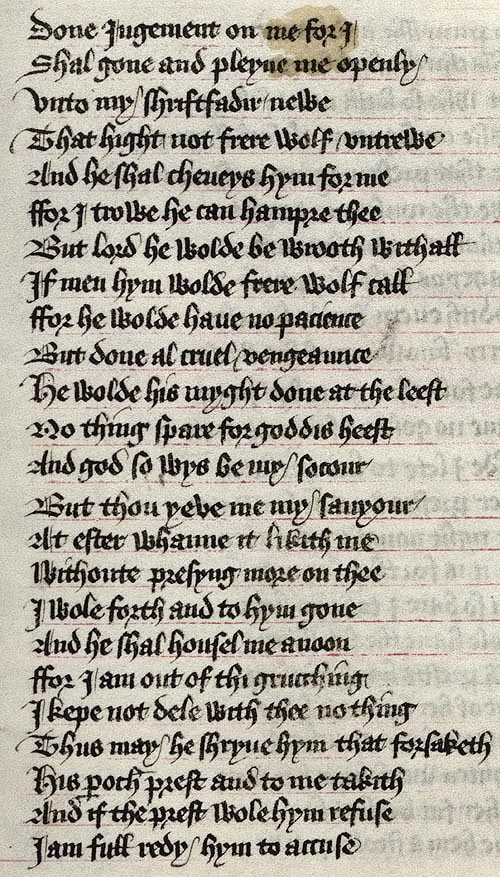 Done Jugement on me for I
Shal gone and pleyne me openly
Vnto my shriftfadir newe
That hight not frere Wolf vntrewe
And he shal cheueys hym for me
ffor I trowe he can hampre thee
But lord he wolde be wrooth withall
If men hym wolde frere Wolf call
ffor he wolde haue no pacience
But done al cruel vengeaunce
He wolde his myght done at the leest
No thing spare for goddis heest
And god so wys be my socour
But thou yeve me my sauyour
At ester whanne it likith me
Withoute presyng more on thee
I wole forth and to hym gone
And he shal housel me anoon
ffor I am out of thi grucching
I kepe not dele with thee no thing
Thus may he shryue hym that forsaketh
His poch prest and to me takith
And if the prest wole hym refuse
I am full redy hym to accuse